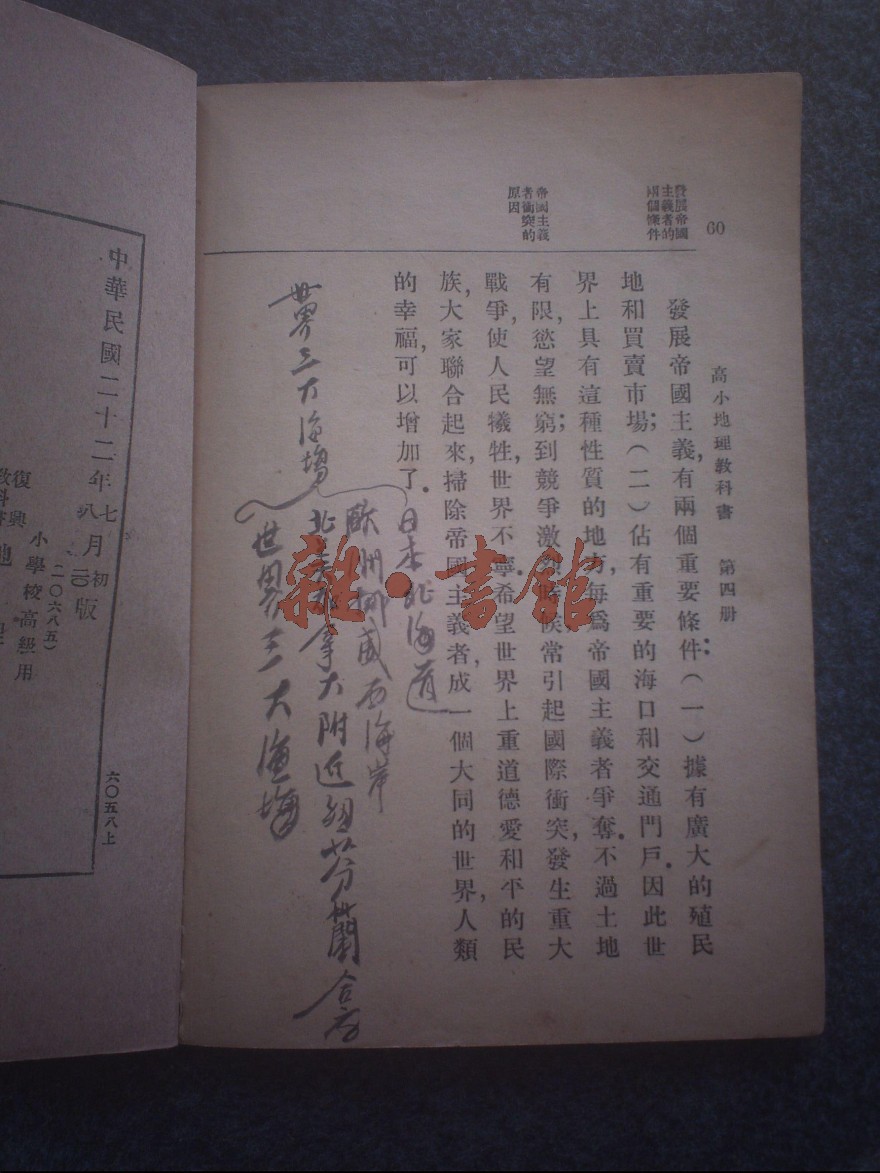 60
高小地理教科書 第四册
發展帝國
主義者的
兩個條件
帝國主義
者衝突的
原因
發展帝國主義,有兩個重要條件;(一)據有廣大的殖民
地和買賣市場;(二)佔有重要的海口和交通門戶。因此世
界上具有這種性質的地方,每爲帝國主義者爭奪。不過土地
有限,慾望無窮;到競爭激烈時候,常引起國際衝突,發生重大
戰爭,使人民犧牲,世界不寧。希望世界上重道德愛和平的民
族,大家聯合起來,掃除帝國主義者,成一個大同的世界,人類
的幸福,可以增加了。
日本北海道
歐州挪威西海岸
北美 拿大附近紐芬蘭
世界三大漁場
世界三大漁場
雜·書館
中華民國二十二年七月初版
八 一〇
小學校高級用
(二〇六八五)
復興
教科書 地理
六〇五八上